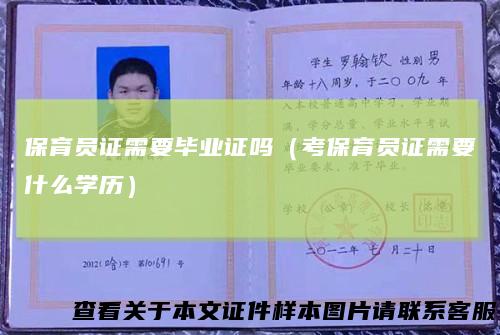 学生 罗翰钦 性别 男
年龄十八周岁，于二〇〇九年
入本校普通高中学习，学业期
满，学分总量、学业水平考试
保育员证需要毕业证吗（考保育员证需要
毕业要求，准予毕业。
什么学历）
学校（公章） 校长
二〇一二年 七月二十日
2012(哈)字 第101691号
查看关于本文证件样本图片请联系客服